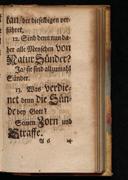 kan, der dieselbigen ver-
führet.
12. Sind denn nun da-
her alle Menschen von
Natur Sünder?
Ja, sie sind allzumahl
Sünder.
13. Was verdie-
net denn die Sün-
de bey Gott?
Seinen Zorn und
Straffe.
A 6 14